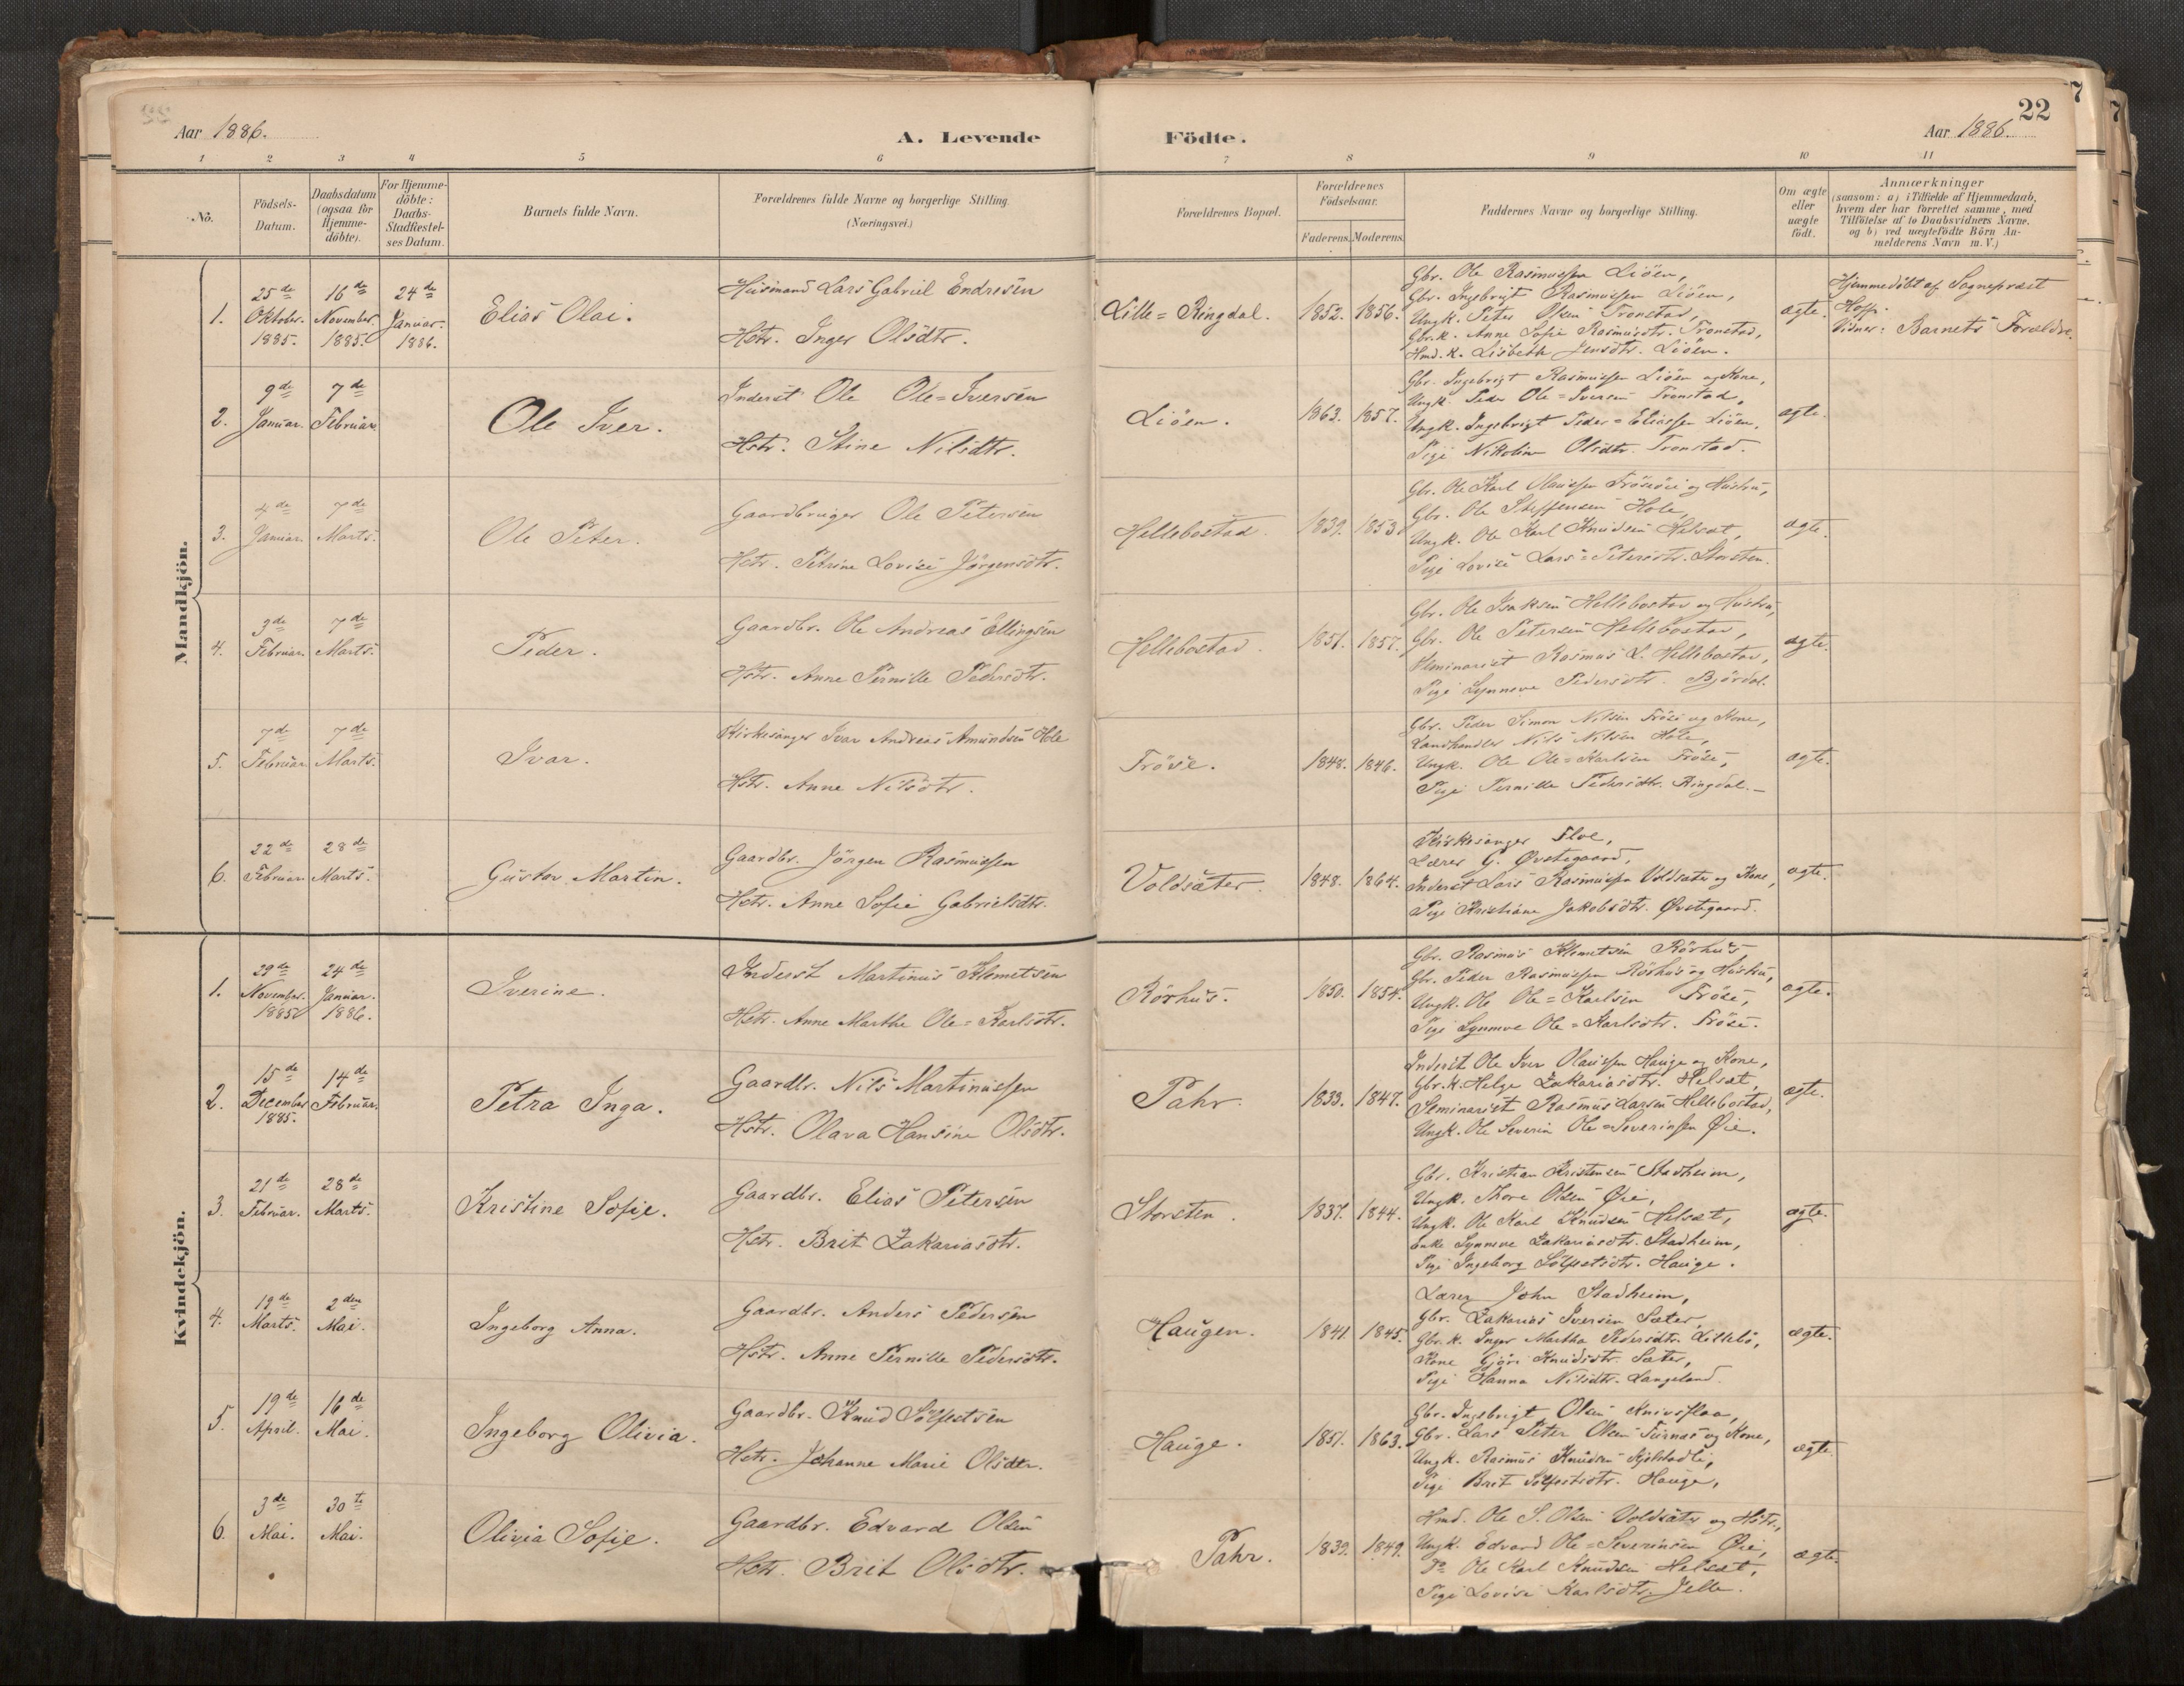 22
Aar 1886.
A. Levende Födte.
Aar 1886.
1 2 3 4 5 6 7 8 9 10 11
No.
Födsels-Datum.
Daabsdatum (ogsaa for Hjemme-döbte).
For Hjemme-döbte: Daabs-Stadfæstel-ses Datum.
Barnets fulde Navn.
Forældrenes fulde Navne og borgerlige Stilling.
(Næringsvei.)
Forældrenes Bopæl.
Forældrenes Födselsaar.
Faderens. Moderens.
Faddernes Navne og borgerlige Stilling.
Om ægte eller uægte födt.
Anmærkninger
(saasom: a) i Tilfælde af Hjemmedaab,
hvem der har forrettet samme, med
Tilföielse af to Daabsvidners Navne,
og b) ved uægtefödte Börn An-
melderens Navn m. V.)
Mandkjön.
1. 25de Oktober. 1885. 16de November. 1885. 24de Januar. 1886.
Elias Olai.
Husmand Lars Gabriel Endresen
Hstr. Inger Olsdtr.
Lille=Ringdal. 1852. 1856.
Gbr. Ole Rasmussen Liöen,
Gbr. Ingebrigt Rasmussen Liöen,
Ungk. Peter Olsen Tronstad,
Gbr.k. Anne Sofie Rasmusdtr. Tronstad,
Hmd.k. Lisbeth Jensdtr. Liöen.
ægte.
Hjemmedöbt af Sognepræst
Hopp.
Vidner: Barnets Forældre.
2. 9de Januar. 7de Februar.
Ole Iver.
Inderst Ole Ole=Iversen
Hstr. Stine Nilsdtr.
Liöen. 1863. 1857.
Gbr. Ingebrigt Rasmussen Liöen og Kone,
Ungk. Peder Ole=Iversen Tronstad,
Ungk. Ingebrigt Peder=Eliassen Liöen,
Pige Nikoline Olsdtr. Tronstad.
ægte.
3. 4de Januar. 7de Marts.
Ole Peter.
Gaardbruger Ole Petersen
Hstr. Petrine Lovise Jörgensdtr.
Hellebostad. 1839. 1853.
Gbr. Ole Karl Olaussen Fröseöie og Hustru,
Gbr. Ole Steffensen Hole,
Ungk. Ole Karl Knudsen Helsæt,
Pige Lovise Lars=Petersdtr. Storsten.
ægte.
4. 3de Februar. 7de Marts.
Peder.
Gaardbr. Ole Andreas Ellingsen
Hstr. Anne Pernille Pedersdtr.
Hellebostad. 1851. 1857.
Gbr. Ole Isaksen Hellebostad og Hustru,
Gbr. Ole Petersen Hellebostad,
Seminarist Rasmus L. Hellebostad,
Pige Synneve Pedersdtr. Björdal.
ægte.
5. 7de Februar. 7de Marts.
Ivar.
Kirkesanger Ivar Andreas Amundsen Hole
Hstr. Anne Nilsdtr.
Fröse. 1848. 1846.
Gbr. Peder Simon Nilsen Fröse og Kone,
Landhandler Nils Nilsen Hole,
Ungk. Ole Ole=Karlsen Fröse,
Pige Pernille Pedersdtr. Ringdal.
ægte.
6. 22de Februar. 28de Marts.
Gustav Martin.
Gaardbr. Jörgen Rasmussen
Hstr. Anne Sofie Gabrielsdtr.
Voldsæter. 1848. 1864.
Kirkesanger Floe,
Lærer G. Øvstegaard,
Inderst Lars Rasmussen Voldsæter og Kone,
Pige Kristiane Jakobsdtr. Øvstegaard.
ægte.
Kvindekjön.
1. 29de November. 1885. 24de Januar. 1886.
Iverine.
Inderst Martinus Klometsen
Hstr. Anne Marthe Ole=Karlsdtr.
Rörhus. 1850. 1854.
Gbr. Rasmus Klometsen Rörhus
Gbr. Peder Rasmussen Rörhus og Hustru,
Ungk. Ole Ole=Karlsen Fröse,
Pige Synneve Ole=Karlsdtr. Fröse.
ægte.
2. 15de December 1885. 14de Februar.
Petra Inga.
Gaardbr. Nils Martinussen
Hstr. Olava Hansine Olsdtr.
Pahr. 1833. 1847.
Inderst Ole Iver Olaussen Hauge og Kone,
Gbr.k. Helge Zakariasdtr. Helsæt,
Seminarist Rasmus Larsen Hellebostad,
Ungk. Ole Severin Ole=Severinssen Øie.
ægte.
3. 21de Februar. 28de Marts.
Kristine Sofie.
Gaardbr. Elias Petersen
Hstr. Brit Zakariasdtr.
Storsten. 1837. 1844.
Gbr. Kristian Kristensen Stadheim,
Ungk. Thore Olsen Øie,
Ungk. Ole Karl Knudsen Helsæt,
Enke Synneve Zakariasdtr. Stadheim,
Pige Ingeborg Sölfestsdtr. Hauge.
ægte.
4. 19de Marts. 2den Mai.
Ingeborg Anna.
Gaardbr. Anders Pedersen
Hstr. Anne Pernille Pedersdtr.
Haugen. 1841. 1845.
Lærer John Stadheim,
Gbr. Zakarias Iversen Sæter,
Gbr.k. Inger Martha Pedersdtr. Lillebö,
Kone Gjöri Knudsdtr. Sæter,
Pige Hanna Nilsdtr. Langeland.
ægte.
5. 19de April. 16de Mai.
Ingeborg Olivia.
Gaardbr. Knud Sölfestsen
Hstr. Johanne Marie Olsdtr.
Hauge. 1851. 1863.
Gbr. Ingebrigt Olsen Knivsflaa,
Gbr. Lars Peter Olsen Furnæs og Kone,
Ungk. Rasmus Knudsen Kjelstadli,
Pige Brit Sölfestsdtr. Hauge,
ægte.
6. 3de Mai. 30te Mai.
Olivia Sofie.
Gaardbr. Edvard Olsen
Hstr. Brit Olsdtr.
Pahr. 1839. 1849.
Hmd. Ole S. Olsen Voldsæter og Hstr.,
Ungk. Edvard Ole=Severinsen Øie,
Do Ole Karl Knudsen Helsæt,
Pige Lovise Karlsdtr. Jelle.
ægte.